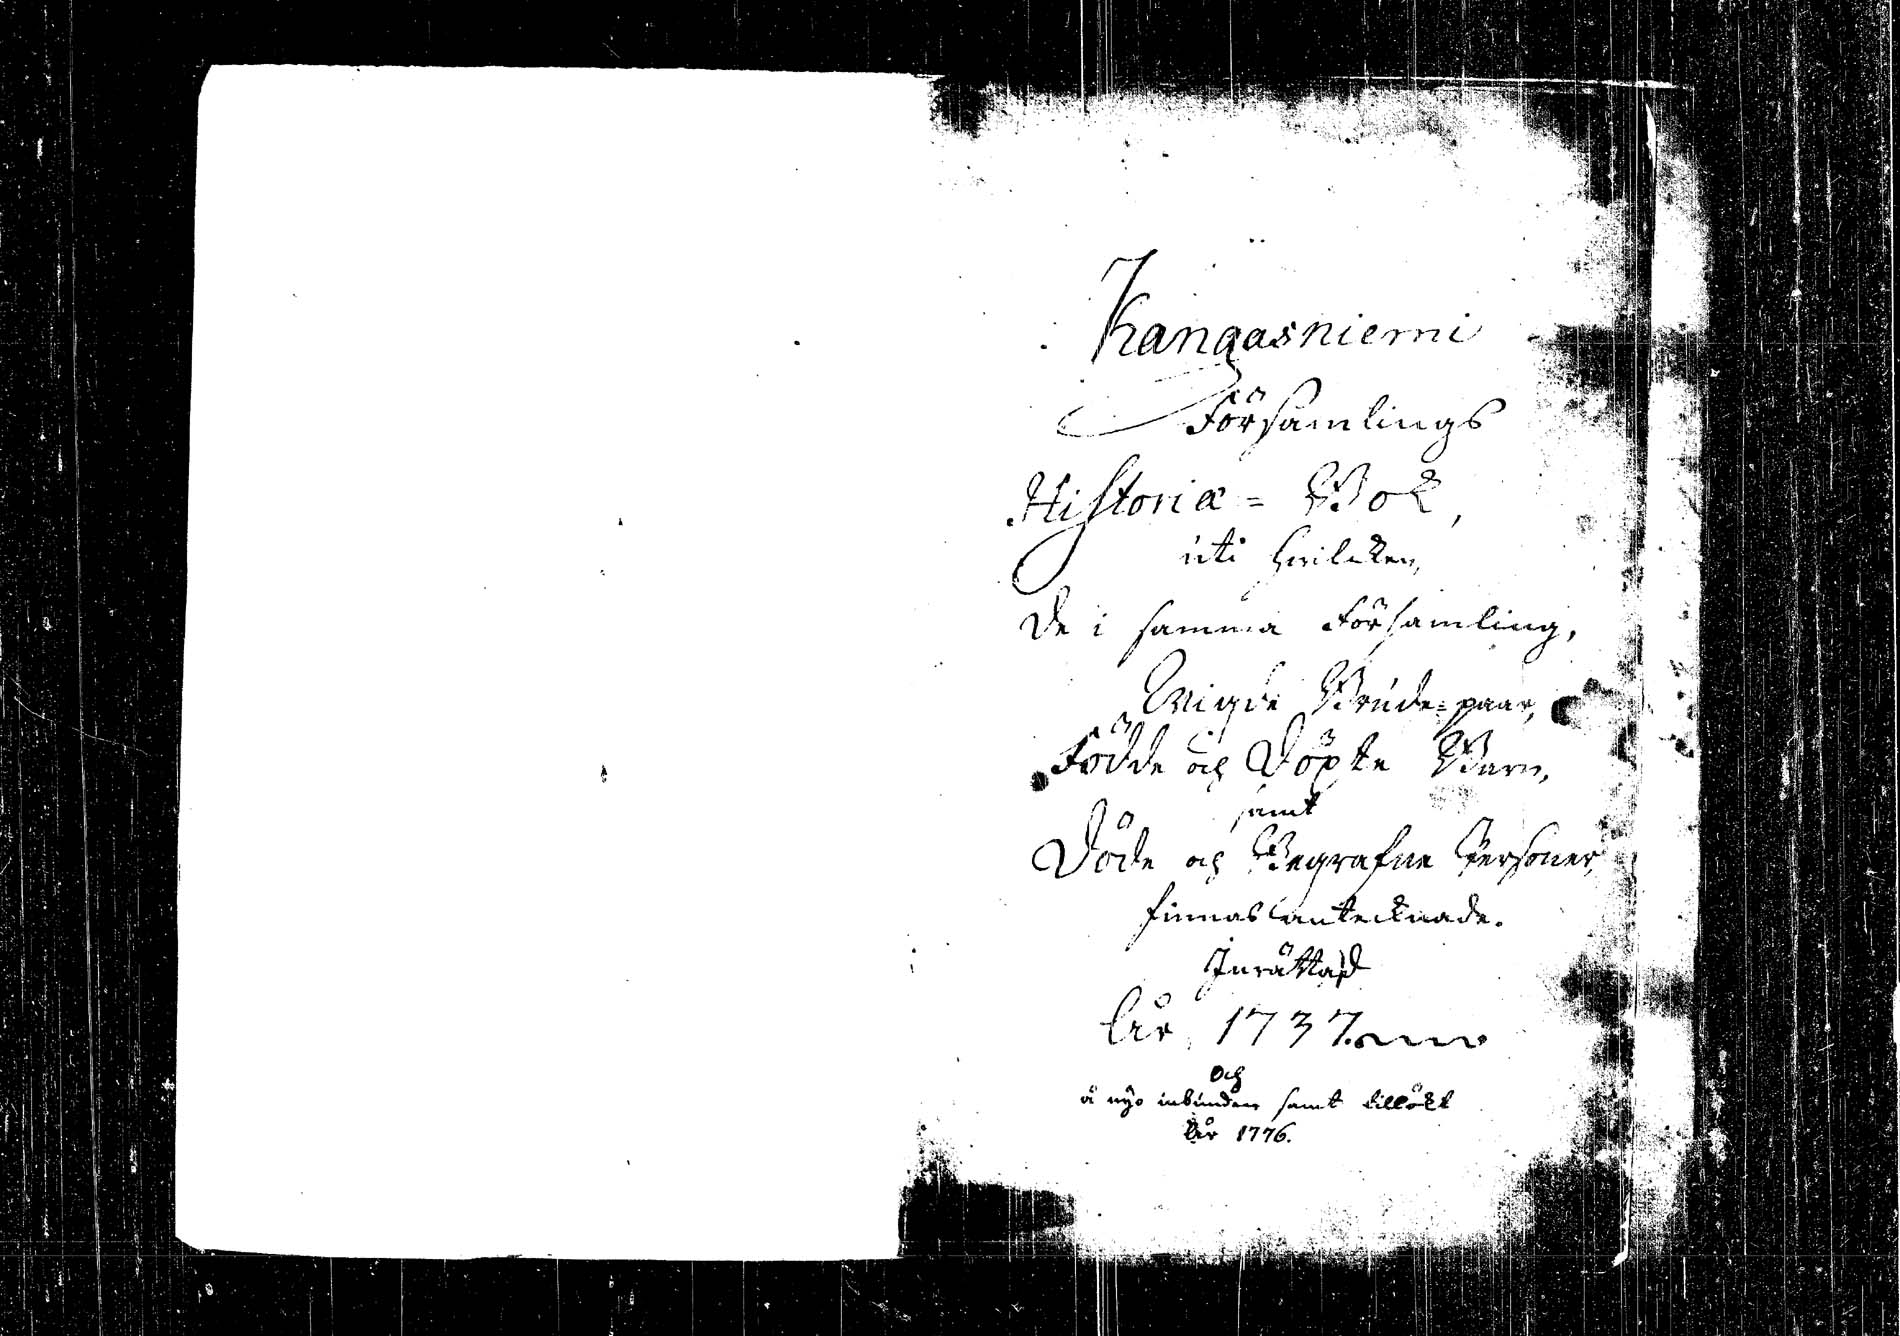 Kangasniemi
Församlings
Historiæ = Bok,
uti hvilcken,
De i samma Församling,
Wigde Brude=paar,
Födde och Döpte Barn,
samt
Döde och Begrafne Personer,
finnas antecknade.
Inrättad
År 1737.
Och
å nyo inbunden samt tillökt
År 1776.